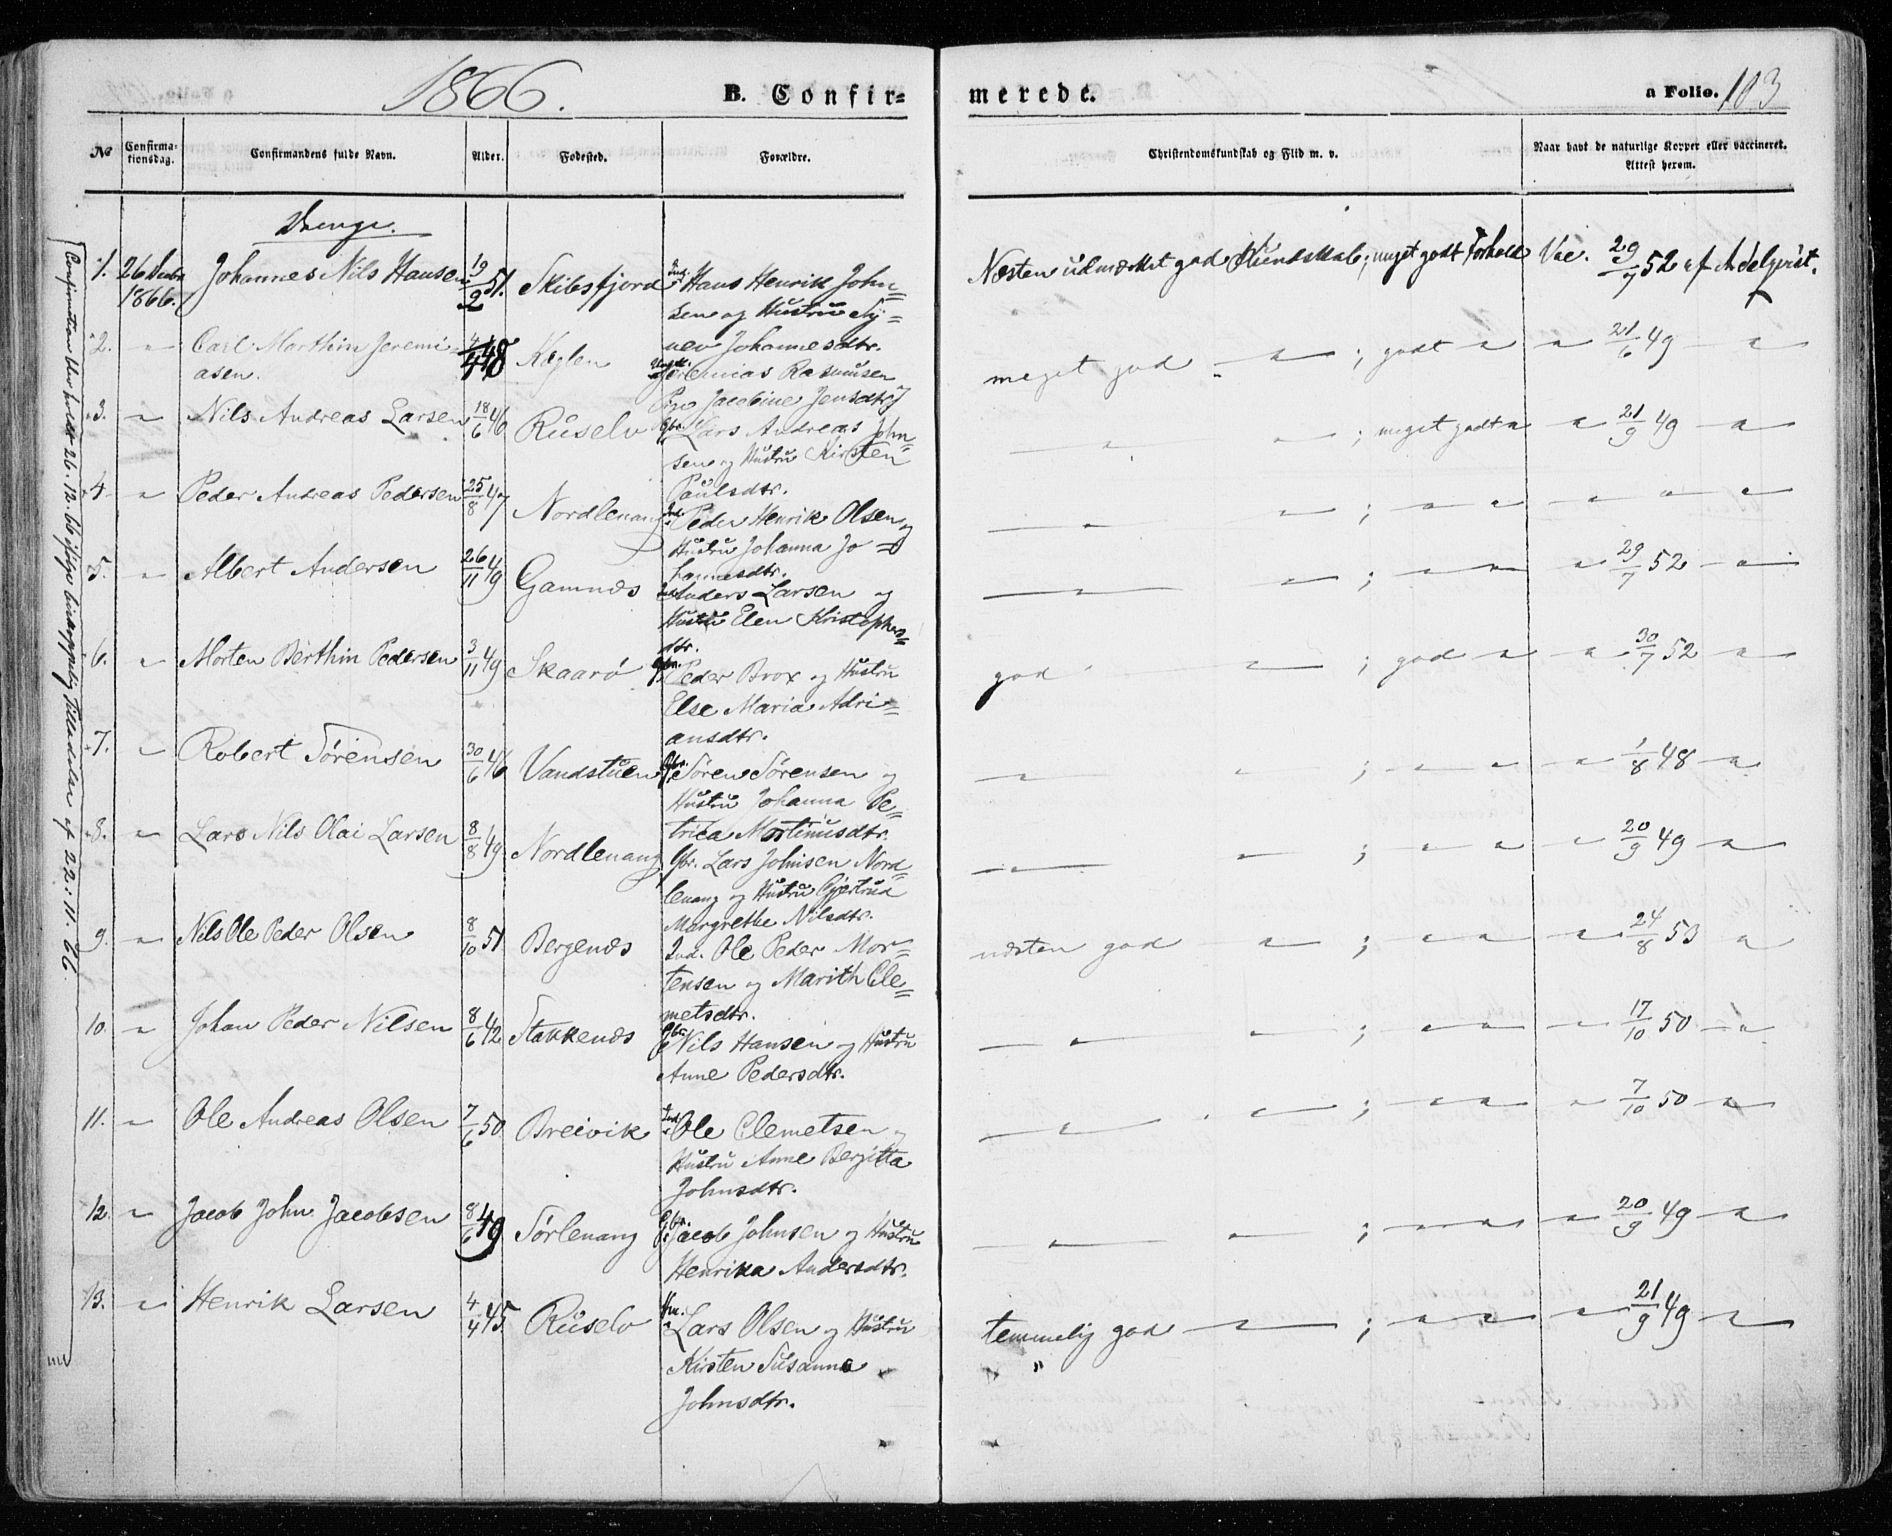 1866.
B. Confir=
merede.
a Folio. 103
No
Confirma-
tionsdag.
Confirmandens fulde Navn.
Alder.
Fødested.
Forældre.
Christendomskundskab og Flid m. v.
Naar havt de naturlige Kopper eller vaccineret.
Attest herom.
Drenge.
1. 26 Decbr 1866. Johannes Nils Hansen 19/2 51. Skibsfjord Ind. Hans Henrik John=
sen og Hustru Sy=
nev Johannesdtr.
Næsten udmærket god Kundskab; meget godt Forhold Vac. 29/7 52 af Adelqvist.
2. " Carl Marthin Jeremi=
asen. 4/4 48 Køglen Ungk. Jeremias Rasmusen
Pige Jacobine Jensdtr
meget god " ; godt " " 21/6 49 "
3. " Nils Andreas Larsen 18/6 46 Rüselv Gbr. Lars Andreas John=
sen og Hustru Kirsten
Paulsdtr.
" " ; meget godt " " 21/9 49 "
4. " Peder Andreas Pedersen 25/8 47 Nordlenang Ind. Peder Henrik Olsen og
Hustru Johanna Jo=
hannesdtr.
" " ; " " " " "
5. " Albert Andersen 26/11 49 Gamnæs Ind. Anders Larsen og
Hustru Elen Kristophers=
dtr.
" " ; " " " 29/7 52 "
6. " Morten Berthin Pedersen 3/11 49 Skaarø Gbr. Peder Brox og Hustru
Else Maria Adri=
ansdtr.
god " ; god " " 30/7 52 "
7. " Robert Sørensen 30/6 46 Vandstuen Gbr. Søren Sørensen og
Hustru Johanna Pe=
trica Mortinusdtr.
" " ; " " " 1/8 48 "
8. " Lars Nils Olai Larsen 8/8 49 Nordlenang Gbr. Lars Johnsen Nord=
lenang og Hustru Gjertrud
Margrethe Nilsdtr.
" " ; " " " 20/9 49 "
9. " Nils Ole Peder Olsen 8/10 51 Bergenæs Ind. Ole Peder Mor=
tensen og Marith Cle=
metsdtr.
næsten god " ; " " " 24/8 53 "
10. " Johan Peder Nilsen 8/6 42 Stakkenæs Gbr. Nils Hansen og Hustru
Anne Pedersdtr.
" " ; " " " 17/10 50 "
11. " Ole Andreas Olsen 7/6 50 Breivik Ind. Ole Clemetsen og
Hustru Anne Bergitta
Johnsdtr.
" " ; " " " 7/10 50 "
12. " Jacob John Jacobsen 8/6 49 Sørlenang Gbr. Jacob Johnsen og Hustru
Henrika Andersdtr.
" " ; " " " 20/9 49 "
13. " Henrik Larsen 4/4 45 Rüselv Hm. Lars Olsen og Hustru
Kirsten Susanna
Johnsdtr.
temmelig god " ; " " " 21/9 49 "
"
Confirmation blev holdt 26.12.66 ifølge biskoppelig Tilladelse af 22.11.66.